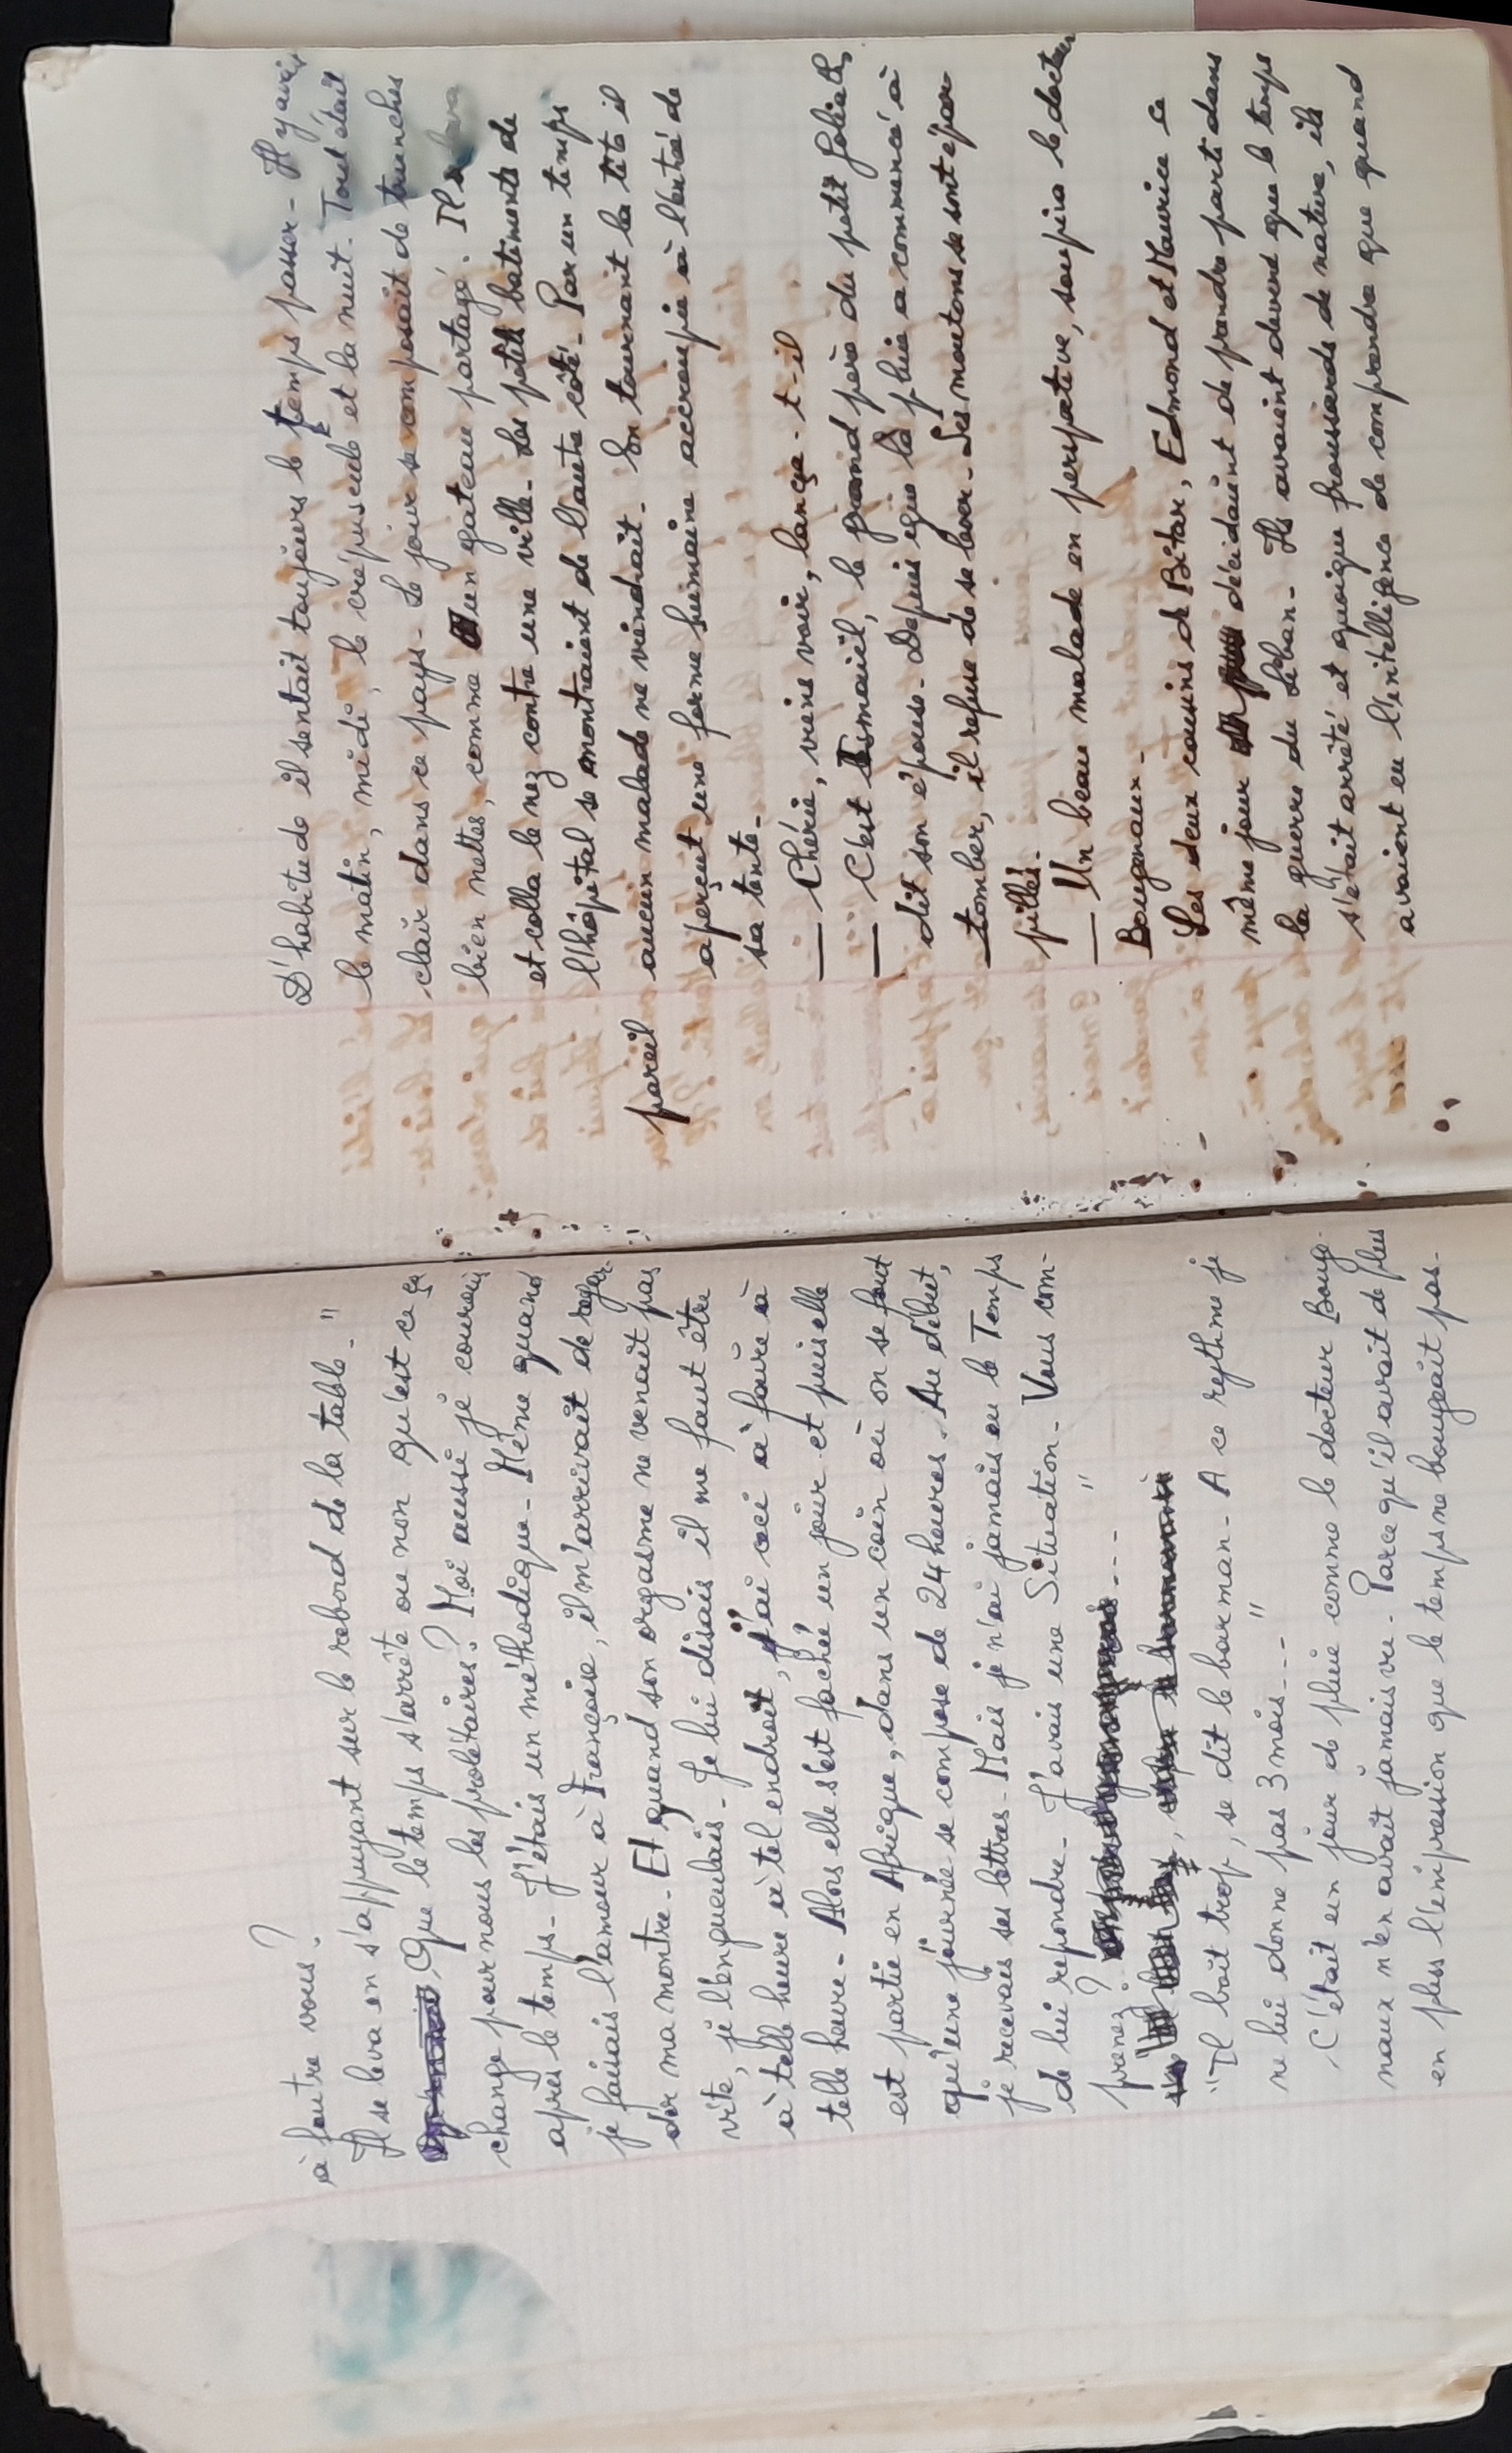 à foutre vous ?
Il se leva en s'appuyant sur le rebord de la table - "
Que le temps s'arrête ou non qu'est ce ça
change pour nous les prolétaires ? Moi aussi je courais
après le temps - J'étais un méthodique - Même quand
je faisais l'amour à Françoise, il m'arrivait de regar-
der ma montre - Et quand son orgasme ne venait pas
vite, je l'engueulais - Je lui disais il me faut être
à telle heure à tel endroit, j'ai ceci à faire à
telle heure - Alors elle s'est fachée un jour et puis elle
est partie en Afrique, dans un coin où on se fout
qu'une journée se compose de 24 heures. Au début,
je recevais ses lettres - Mais je n'ai jamais eu le Temps
de lui repondre - J'avais une Situation - Vous com-
prenez ? ... "
"Il boit trop, se dit le barman - A ce rythme je
ne lui donne pas 3 mois... "
C'était un jour de pluie comme le docteur Bougo-
naux n'en avait jamais vu - Parce qu'il avait de plus
en plus l'impression que le temps ne bougeait pas -
D'habitude il sentait toujours le temps passer - Il y avait
le matin, midi, le crépuscule et la nuit. Tout était
clair dans ce pays - Le jour se composait de tranches
bien nettes, comme un gateau partagé. Il
et colla le nez contre une ville - Les petits batiments de
l'hôpital se montraient de l'autre côté - Par un temps
pareil aucun malade ne viendrait - En tournant la tête il
aperçut une forme humaine accroupie à l'entrée de
sa tente -
— Chérie, viens voir, lança-t-il
— C'est Ismaïel, le grand père du petit Goliath,
dit son épouse - Depuis que la pluie a commencé à
tomber, il refuse de se laver - Les moutons se sont épar
pillés -
— Un beau malade en perspective, soupira le docteur
Bougonaux -
Les deux cousins de Bitar, Edmond et Maurice ce
même jour décidaient de prendre parti dans
la guerre du Liban - Ils avaient deviné que le temps
s'était arrêté et quoique froussards de nature, ils
avaient eu l'intelligence de comprendre que quand